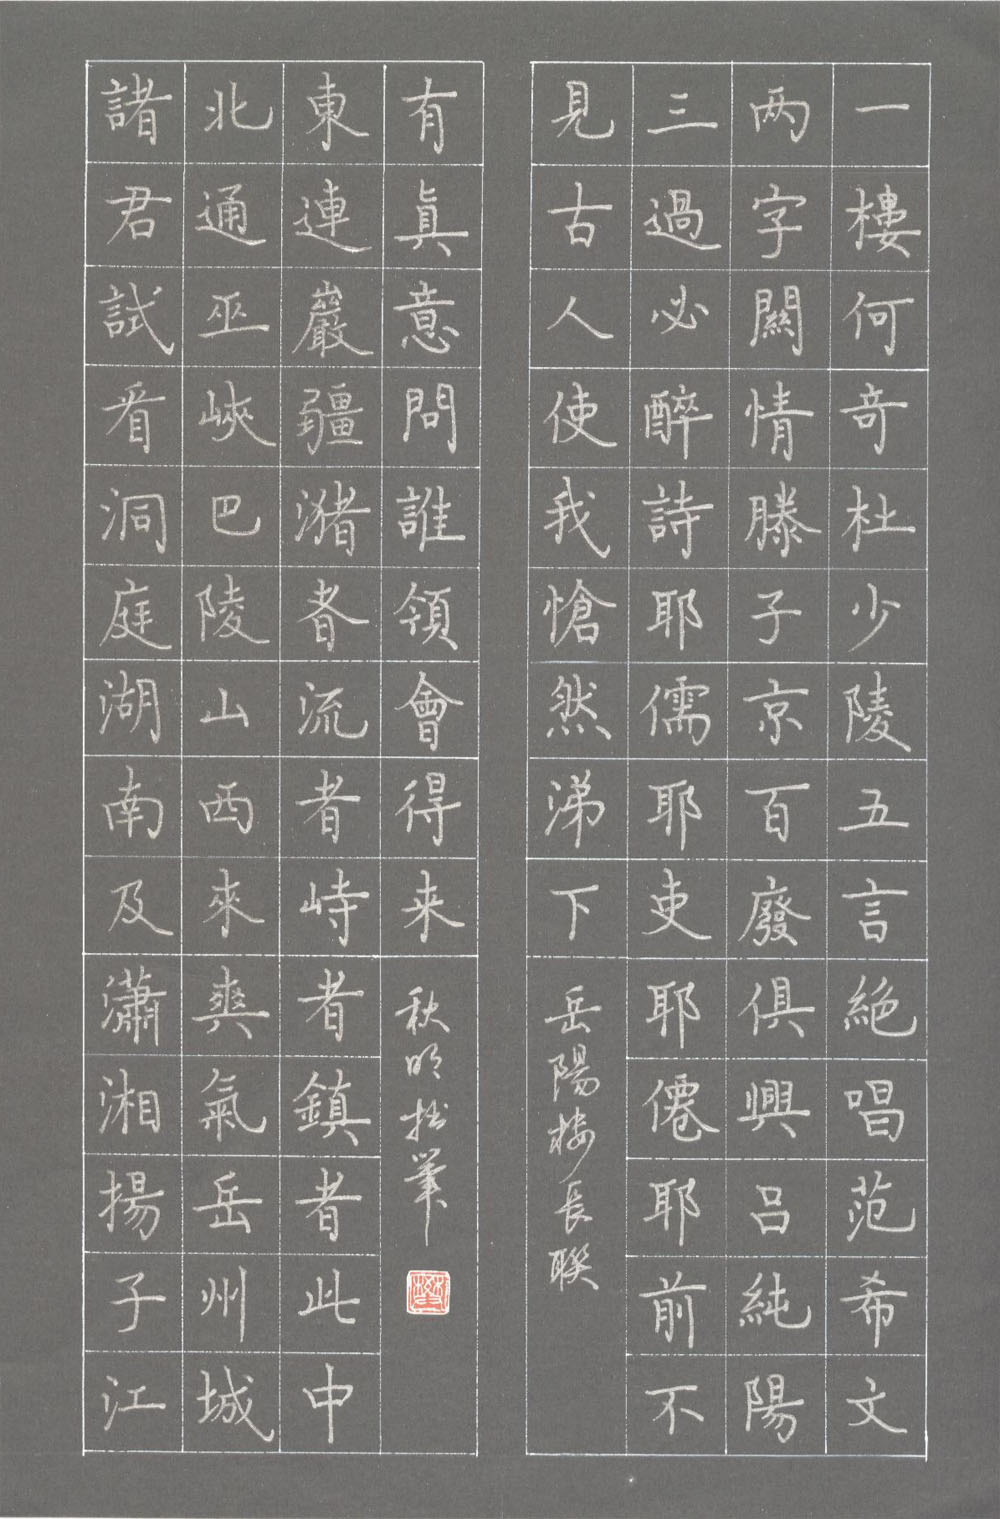 一樓何奇杜少陵五言絕唱范希文
两字關情滕子京百廢俱興呂純陽
三過必醉詩耶儒耶吏耶僊耶前不
見古人使我愴然涕下
岳陽楼長聯
諸君試看洞庭湖南及瀟湘揚子江
北通巫峽巴陵山西來爽氣岳州城
東連巖疆瀦者流者峙者鎮者此中
有眞意問誰領會得来
秋明拙筆